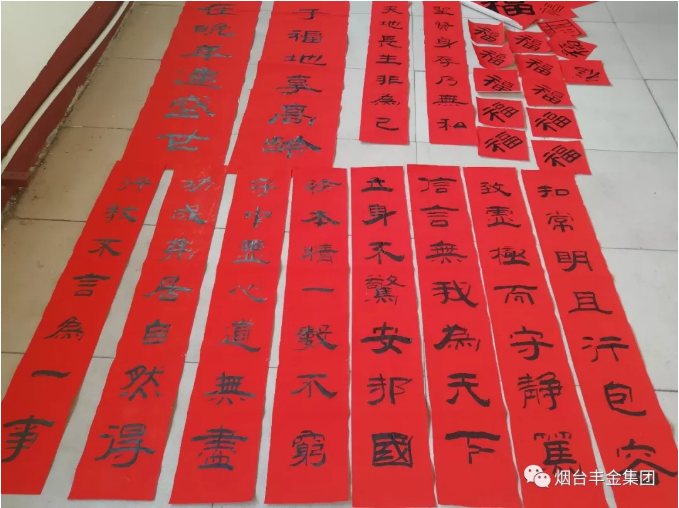 在晚年逢盛世
福地享高龄
天地長生非為己
身存乃無私
福
福
福
福
福
福
福
福
福
福
不言為一事
功成弗居自然得
守中靈心道無盡
本情一數不窮
立身不驚安邦國
信言無我為天下
致虛極而守靜篤
知常明且行包容
烟台丰金集团